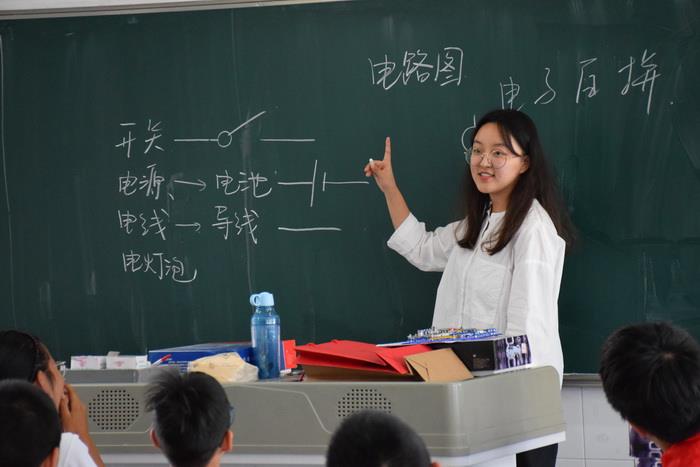 电路图
电子百拼
开关
电源 → 电池
电线 → 导线
电灯泡